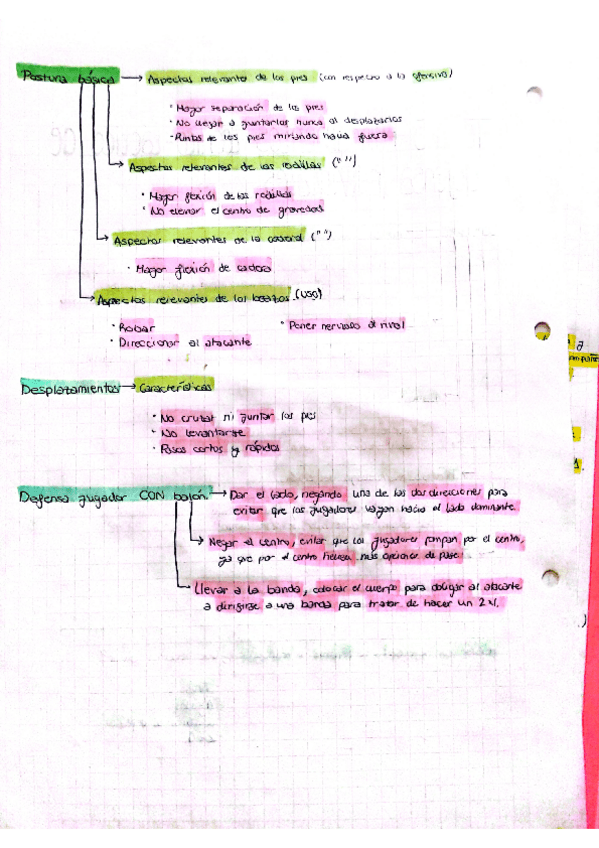 Postura básica → Aspectos relevantes de los pies (con respecto a la ofensiva)
· Mayor separación de los pies
· No llegar a juntarlos nunca al desplazarlos
· Puntas de los pies mirando hacia fuera
Aspectos relevantes de las rodillas (" ")
· Mayor flexión de las rodillas
· No elevar el centro de gravedad
Aspectos relevantes de la cadera (" ")
· Mayor flexión de cadera
Aspectos relevantes de los brazos (uso)
· Robar
· Poner nervioso al rival
· Direccionar al atacante
Desplazamientos → Características
· No cruzar ni juntar los pies
· No levantarse
· Pasos cortos y rápidos
Defensa jugador CON balón → Dar el lado, negando una de las dos direcciones para
evitar que los jugadores vayan hacia el lado dominante.
Negar el centro, evitar que los jugadores rompan por el centro,
ya que por el centro más opciones de pase.
Llevar a la banda, colocar el cuerpo para obligar al atacante
a dirigirse a una banda para tratar de hacer un 2x1.